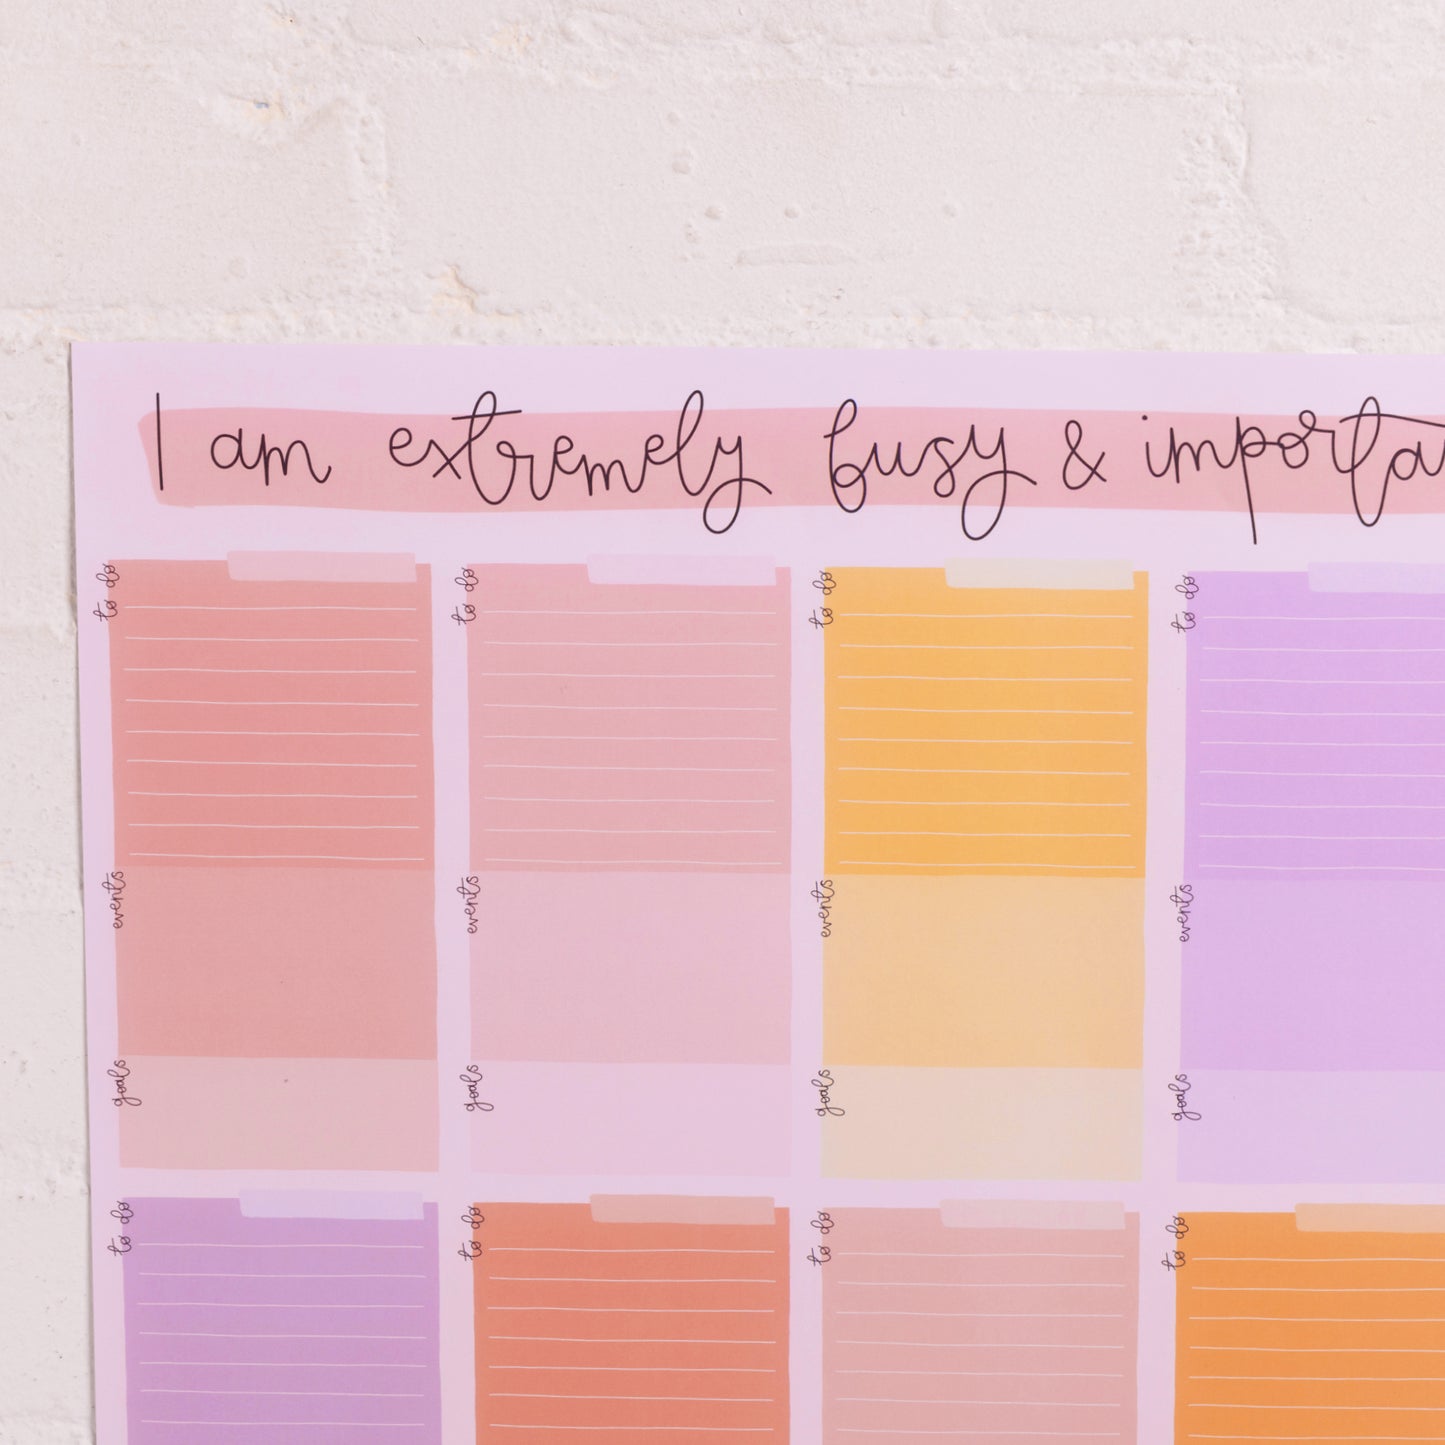 I am extremely busy & importa
to do
to do
to do
to do
events
events
events
events
goals
goals
goals
goals
to do
to do
to do
to do